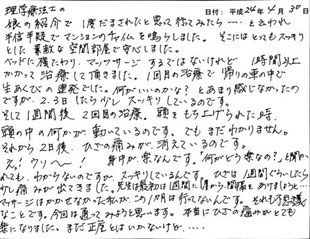 理学療法士の 日付: 平成24年4月30日
娘の紹介で「1度だまされたと思って行てみたら……」と云われ
半信半疑でマンションのチャイムを鳴らしました。そこにはとってもスッキリ
とした素敵な空間部屋で安心しました。
ベッドに横たわり、マッサージするではないけれど 1時間以上
かかって治療して頂きました。1回目の治療で帰りの車の中で
生あくびの連発でした。何がいいのかな？とあまり感じなかったの
ですが、2.3日したら少しスッキリしているのです。
そして1週間後 2回目の治療。頭をもち上げられた時、
頭の中の何かが動いているのです、でもまだわかりません。
それから2日後、ひざの痛みが消えているのです。
えっ！ウソー！ 身中が楽なんです。「何がどう楽なの？」と聞か
れても、わからないのですが、スッキリしているんです。ひざは1週間ぐらいしたら
少し痛みが出てきました。先生は最初は1週間に1度から、間隔もありますよう……
マッサージはかかせなかった私が、この1ヶ月は行ってないんです。それも不思議
なことです。今回は通ってみようと思います。本当にひざの痛みがとても
楽になりました。まだ正座とはいかないけど、……